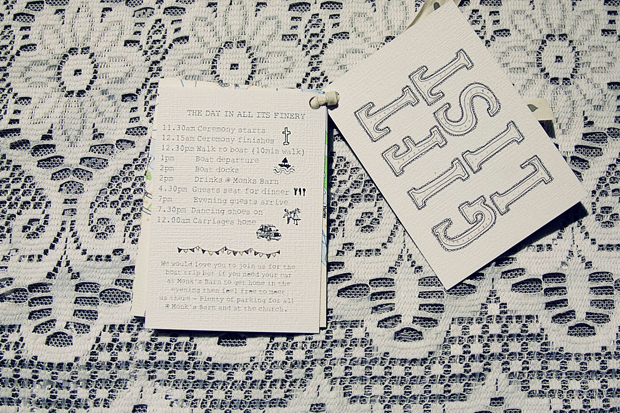 THE DAY IN ALL ITS FINERY
11.30am Ceremony starts
12.15am Ceremony finishes
12.30pm Walk to boat (10min walk)
1pm Boat departure
2pm Boat docks
2pm Drinks @ Monks Barn
4.30pm Guests seat for dinner
7pm Evening guests arrive
7.30pm Dancing shoes on
12.00am Carriages home
We would love you to join us for the
boat trip but if you need your car
at Monk's Barn to get home in the
evening then feel free to meet
us there - Plenty of parking for all
at Monk's Barn and at the church.
GIFT
LIST